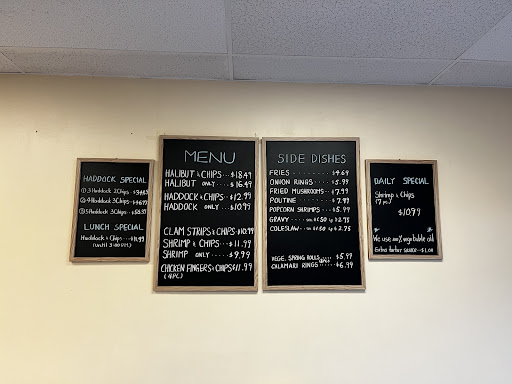 HADDOCK SPECIAL
① 3 Haddock 2 Chips
② 4 Haddock 3 Chips
③ 5 Haddock 3 Chips
LUNCH SPECIAL
Haddock & Chips
MENU
HALIBUT & CHIPS ... $18.49
HALIBUT ONLY .... $16.49
HADDOCK & CHIPS ... $12.99
HADDOCK ONLY .... $10.99
CLAM STRIPS & CHIPS .. $10.99
SHRIMP & CHIPS ... $11.99
SHRIMP ONLY ..... $9.99
CHICKEN FINGERS & CHIPS $11.99
(4PC)
SIDE DISHES
FRIES ......... $4.69
ONION RINGS ..... $5.99
FRIED MUSHROOMS .. $7.99
POUTINE ........ $7.99
POPCORN SHRIMPS ... $5.99
GRAVY
COLESLAW
VEGE. SPRING ROLLS ... $5.99
CALAMARI RINGS ..... $6.99
DAILY SPECIAL
Shrimp & Chips
(7 PC)
$10.99
We use 100% vegetable oil
Extra tartar sauce - $1.00